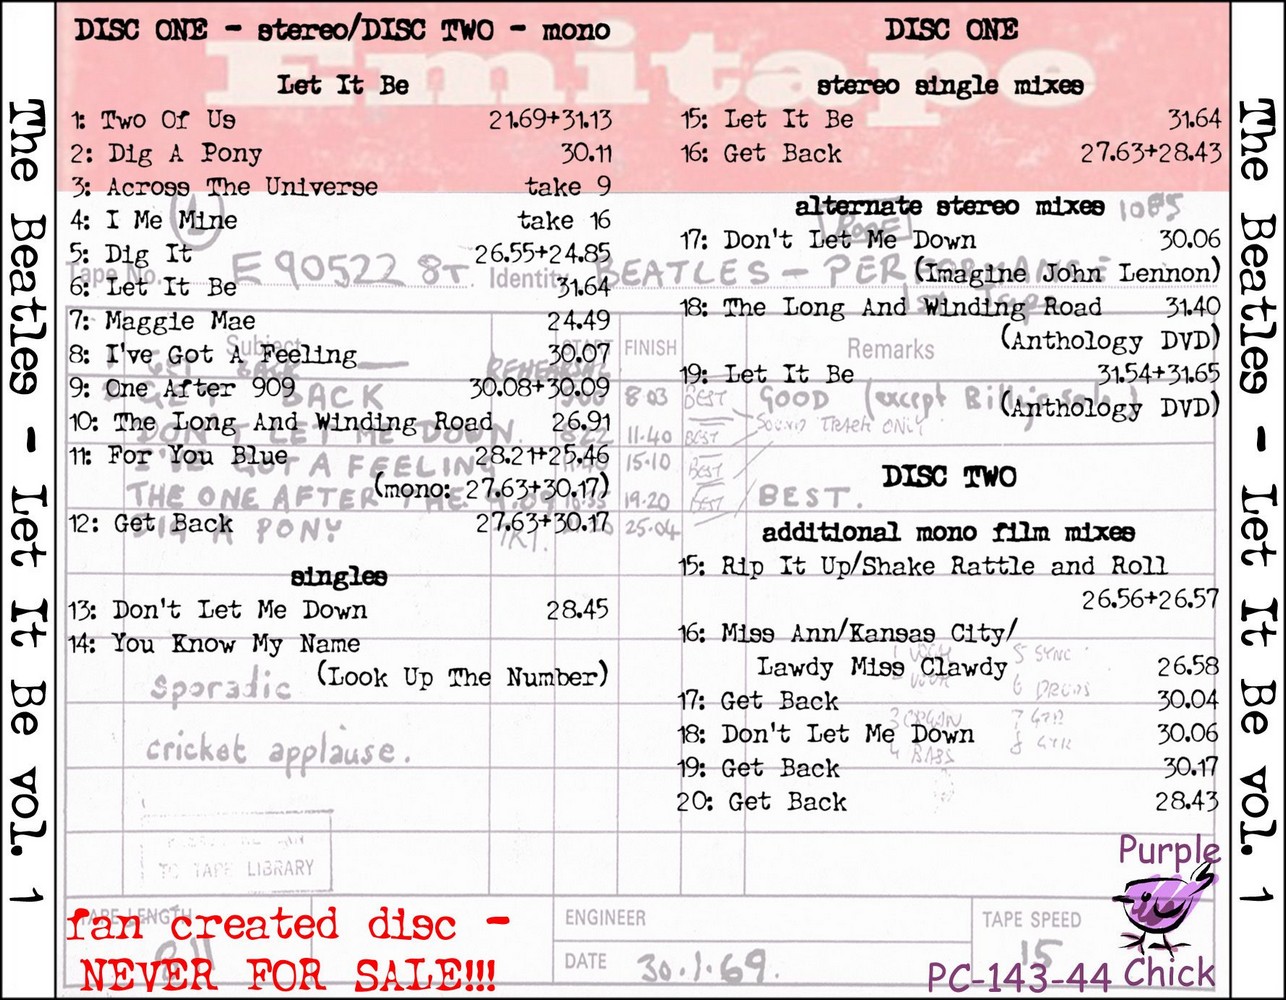 The Beatles - Let It Be vol. 1
DISC ONE - stereo/DISC TWO - mono
Let It Be
1: Two Of Us 21.69+31.13
2: Dig A Pony 30.11
3: Across The Universe take 9
4: I Me Mine take 16
5: Dig It 26.55+24.85
6: Let It Be 31.64
7: Maggie Mae 24.49
8: I've Got A Feeling 30.07
9: One After 909 30.08+30.09
10: The Long And Winding Road 26.91
11: For You Blue 28.21+25.46
(mono: 27.63+30.17)
12: Get Back 27.63+30.17
singles
13: Don't Let Me Down 28.45
14: You Know My Name
(Look Up The Number)
DISC ONE
stereo single mixes
15: Let It Be 31.64
16: Get Back 27.63+28.43
alternate stereo mixes
17: Don't Let Me Down 30.06
(Imagine John Lennon)
18: The Long And Winding Road 31.40
(Anthology DVD)
19: Let It Be 31.54+31.65
(Anthology DVD)
DISC TWO
additional mono film mixes
15: Rip It Up/Shake Rattle and Roll
26.56+26.57
16: Miss Ann/Kansas City/
Lawdy Miss Clawdy 26.58
17: Get Back 30.04
18: Don't Let Me Down 30.06
19: Get Back 30.17
20: Get Back 28.43
Emitape
Tape No. E90522 8T. Identity BEATLES - PERFORMANCE
Subject START FINISH Remarks
GET BACK REHEARSAL
GET BACK 8.03 BEST GOOD (except Billy's solo)
DON'T LET ME DOWN. 8.22 11.40 BEST SOUND TRACK ONLY
I'VE GOT A FEELING 15.10 BEST
THE ONE AFTER THE 9.09 19.20 BEST BEST.
DIG A PONY 25.04
sporadic
cricket applause.
5 SYNC
3 ORGAN
TO TAPE LIBRARY
TAPE LENGTH
ENGINEER
DATE 30.1.69.
TAPE SPEED
15
fan created disc -
NEVER FOR SALE!!!
Purple
Chick
PC-143-44
The Beatles - Let It Be vol. 1